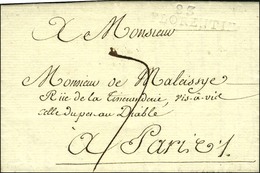 87
FLORENTIN
A Monsieur
Monsieur de Maleissye
Rüe de la Tixeranderie, vis-à-vis
celle du pet au Diable
à Paris